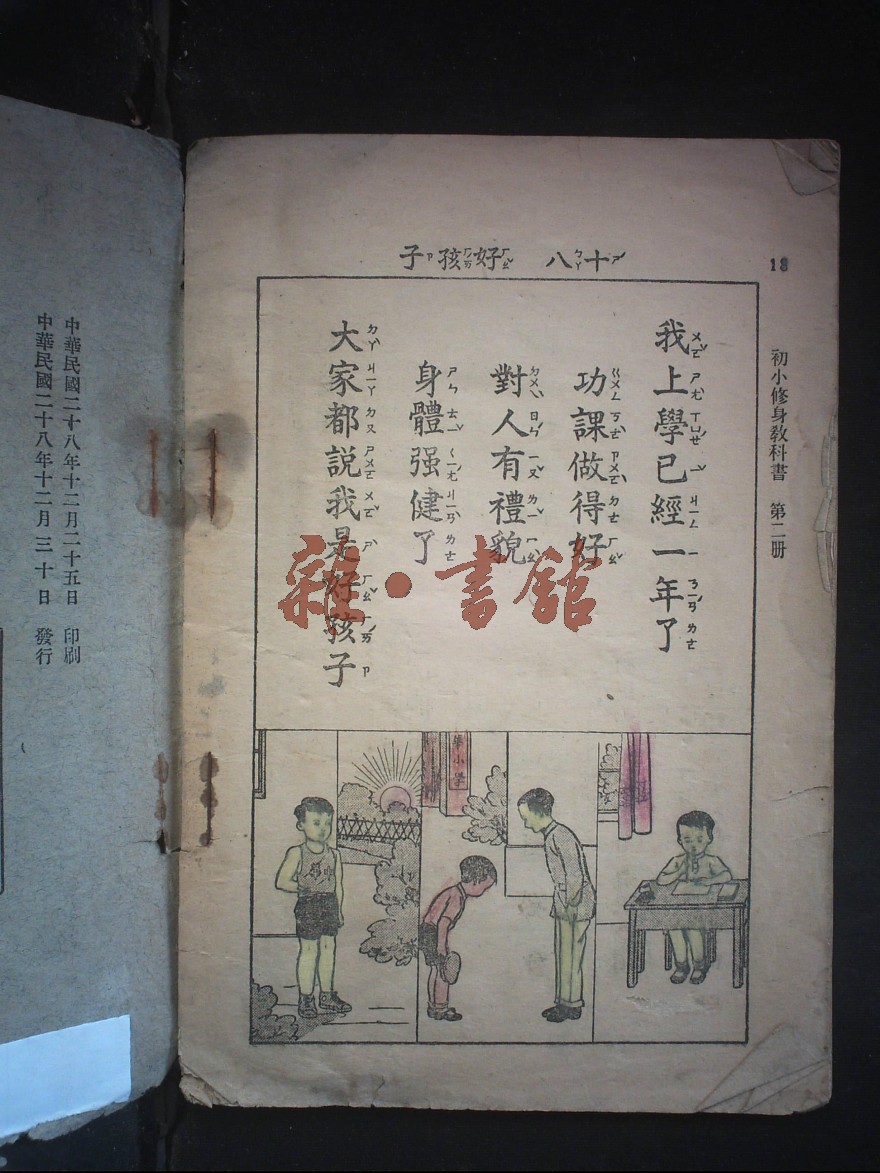 18
初小修身教科書　第二册
十八　好孩子
我上學已經一年了
功課做得好
對人有禮貌
身體强健了
大家都說我是好孩子
華小學
雜·書館
中華民國二十八年十二月二十五日　印刷
中華民國二十八年十二月三十日　發行